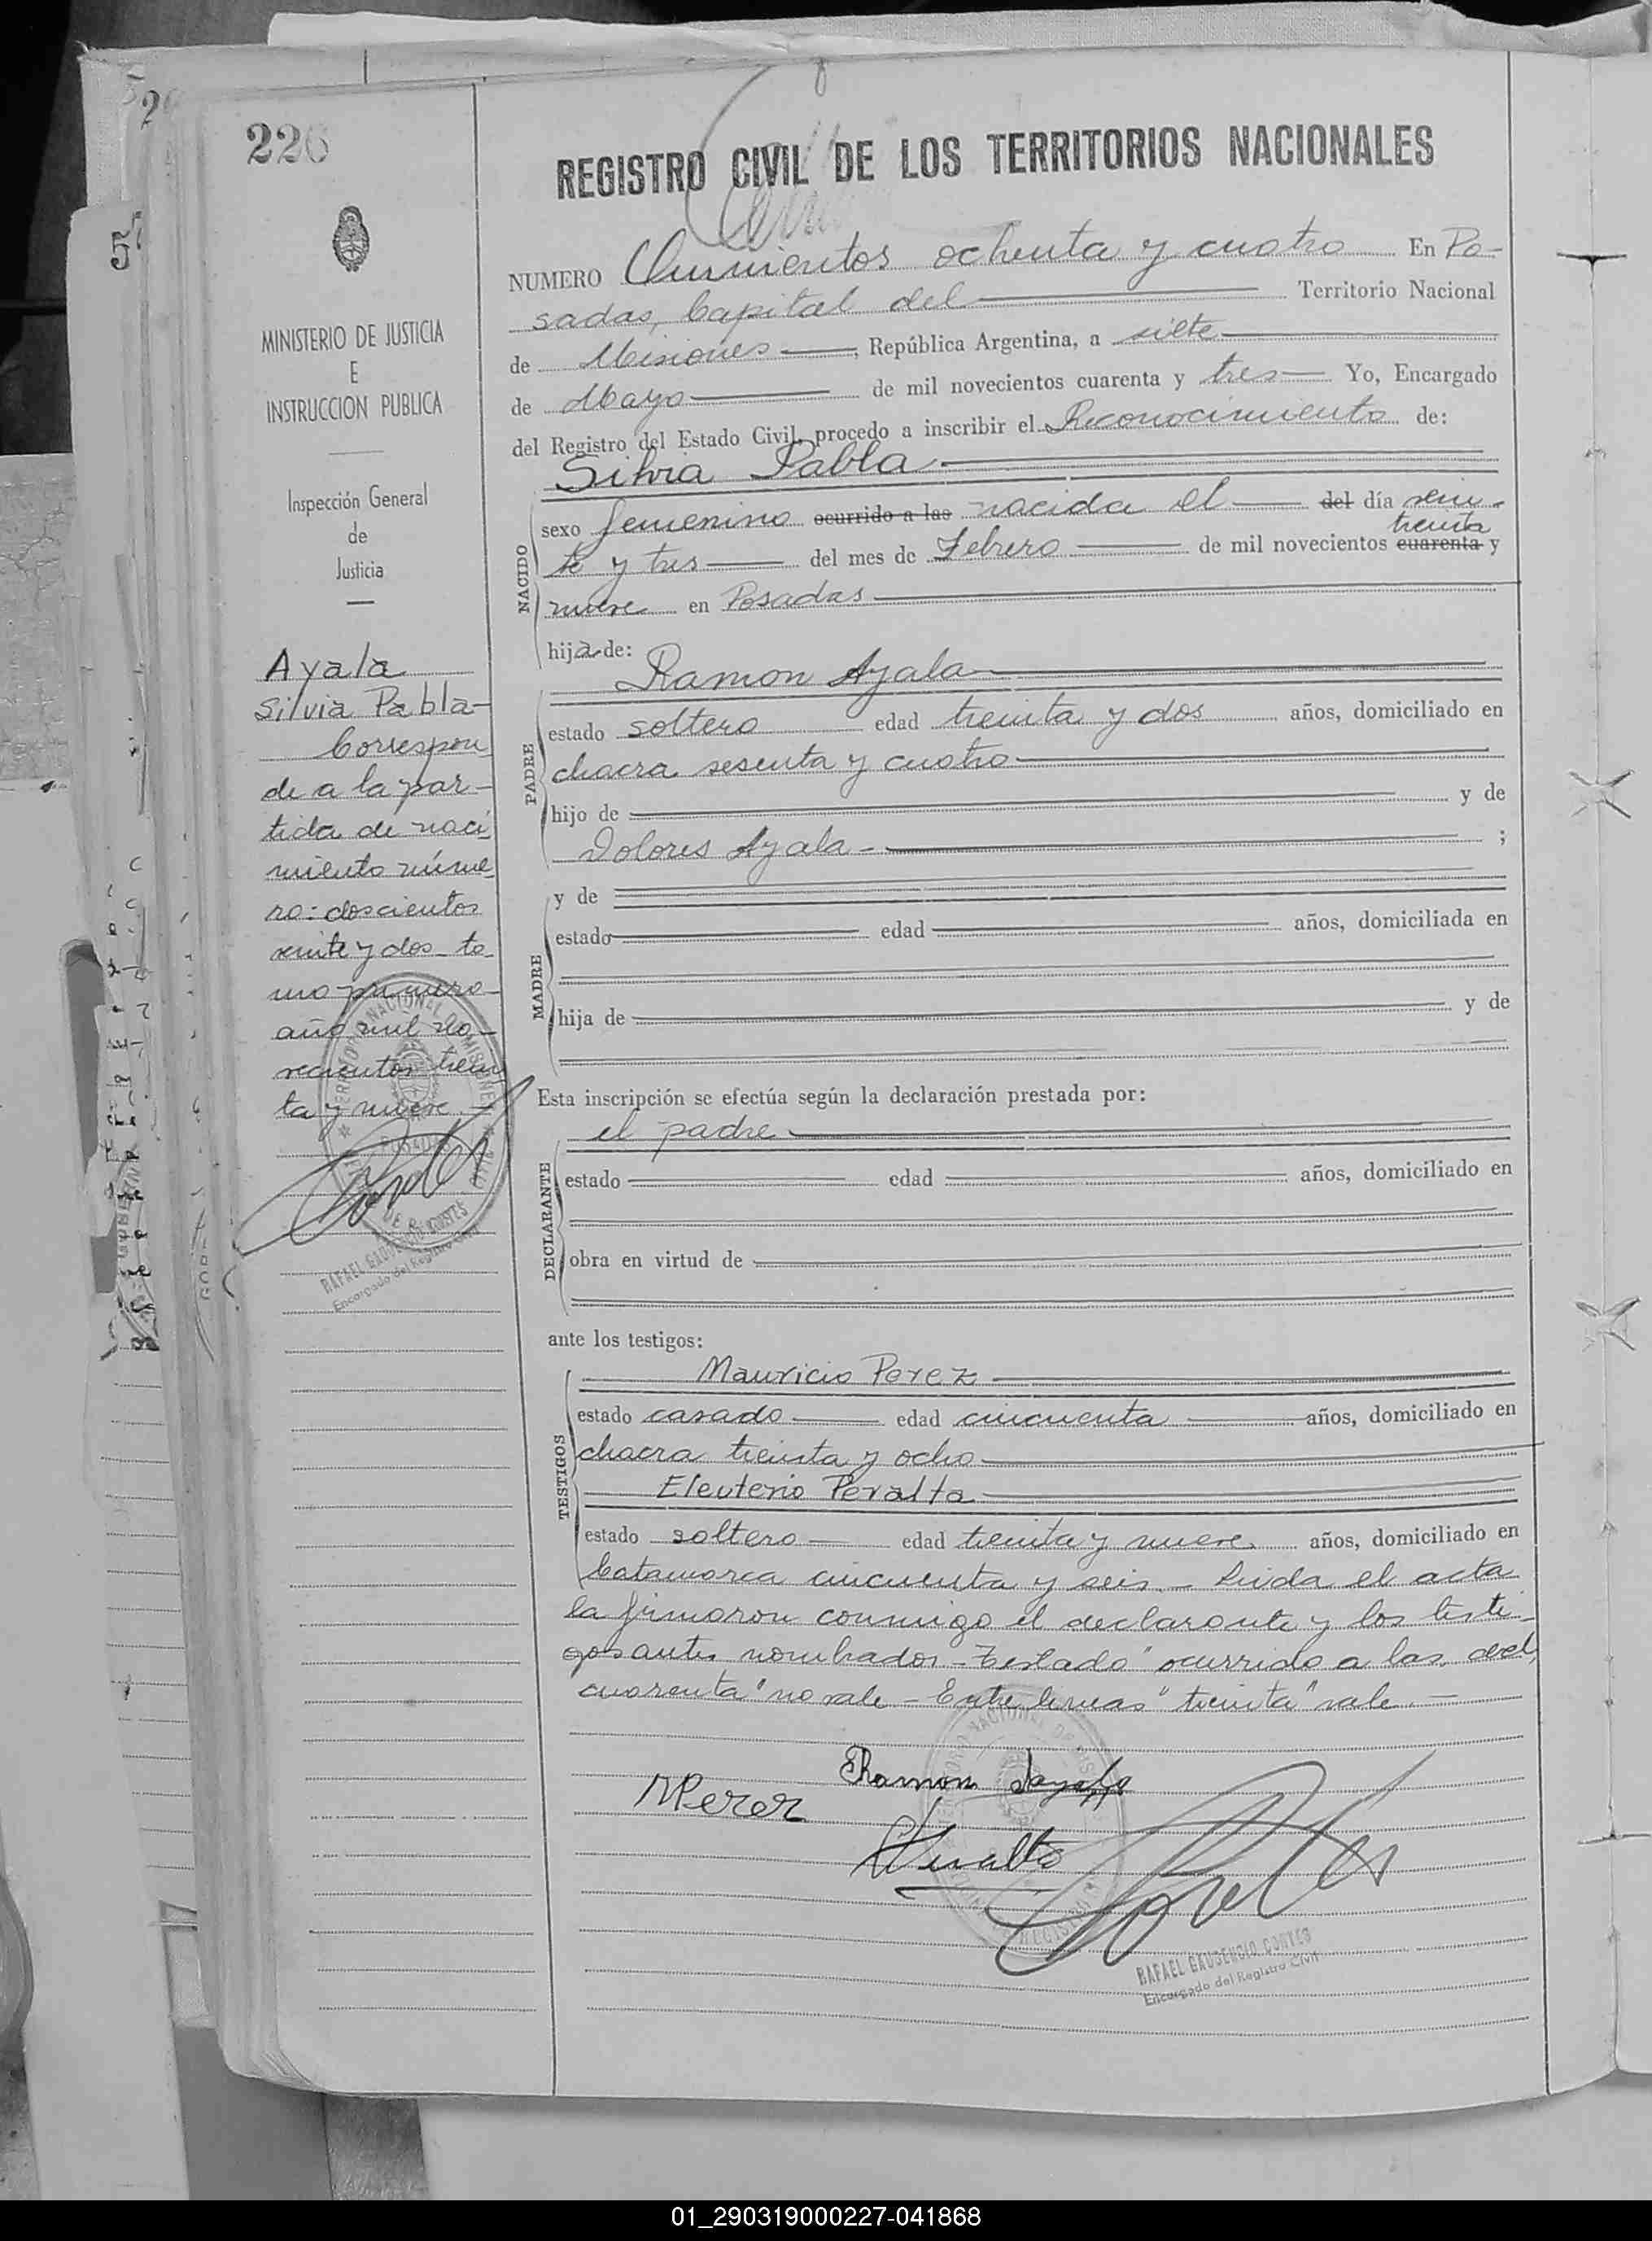 226
REGISTRO CIVIL DE LOS TERRITORIOS NACIONALES
MINISTERIO DE JUSTICIA
E
INSTRUCCION PUBLICA
Inspección General
de
Justicia
Ayala
Silvia Pabla-
Correspon
de a la par-
tida de naci
miento núme
ro: doscientos
veinte y dos to
mo primero
año mil no-
vecientos trein
ta y nueve.-
RAFAEL GAUDENCIO CORTES
Encargado del Registro Civil
NUMERO Quinientos ochenta y cuatro En Po-
sadas, Capital del Territorio Nacional
de Misiones, República Argentina, a siete
de Mayo de mil novecientos cuarenta y tres Yo, Encargado
del Registro del Estado Civil, procedo a inscribir el Reconocimiento de:
Silvia Pabla
NACIDO
sexo femenino ocurrido a las nacida el del día vein-
treinta
te y tres del mes de Febrero de mil novecientos cuarenta y
nueve en Posadas
hija de:
Ramon Ayala
PADRE
estado soltero edad treinta y dos años, domiciliado en
chacra sesenta y cuatro
hijo de y de
Dolores Ayala - ;
y de
MADRE
estado edad años, domiciliada en
hija de y de
Esta inscripción se efectúa según la declaración prestada por:
el padre
DECLARANTE
estado edad años, domiciliado en
obra en virtud de
ante los testigos:
Mauricio Perez
TESTIGOS
estado casado edad cincuenta años, domiciliado en
chacra treinta y ocho
Eleuterio Peralta
estado soltero edad treinta y nueve años, domiciliado en
Catamarca cincuenta y seis.- Leida el acta
la firmaron conmigo el declarante y los testi-
gos antes nombrados - Testado "ocurrido a las, del,
cuarenta" no vale - Entre lineas "treinta" vale.-
Ramon Ayala
MPerez
Peralta
RAFAEL GAUDENCIO CORTES
Encargado del Registro Civil
01_290319000227-041868